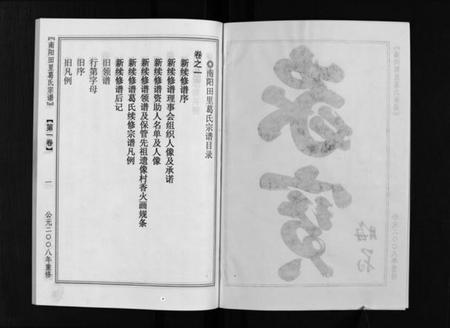 ◎南阳田里葛氏宗谱目录
卷之一
新续修谱序
新续修谱理事会组织人像及承诺
新续修谱资助人名单及人像
新续修谱领谱及保管先祖遗像村香火画规条
新续修谱葛氏续修宗谱凡例
新续修谱后记
旧领谱
行第字母
旧序
旧凡例
『南阳田里葛氏宗谱』
【第一卷】
一
公元二00八年重修